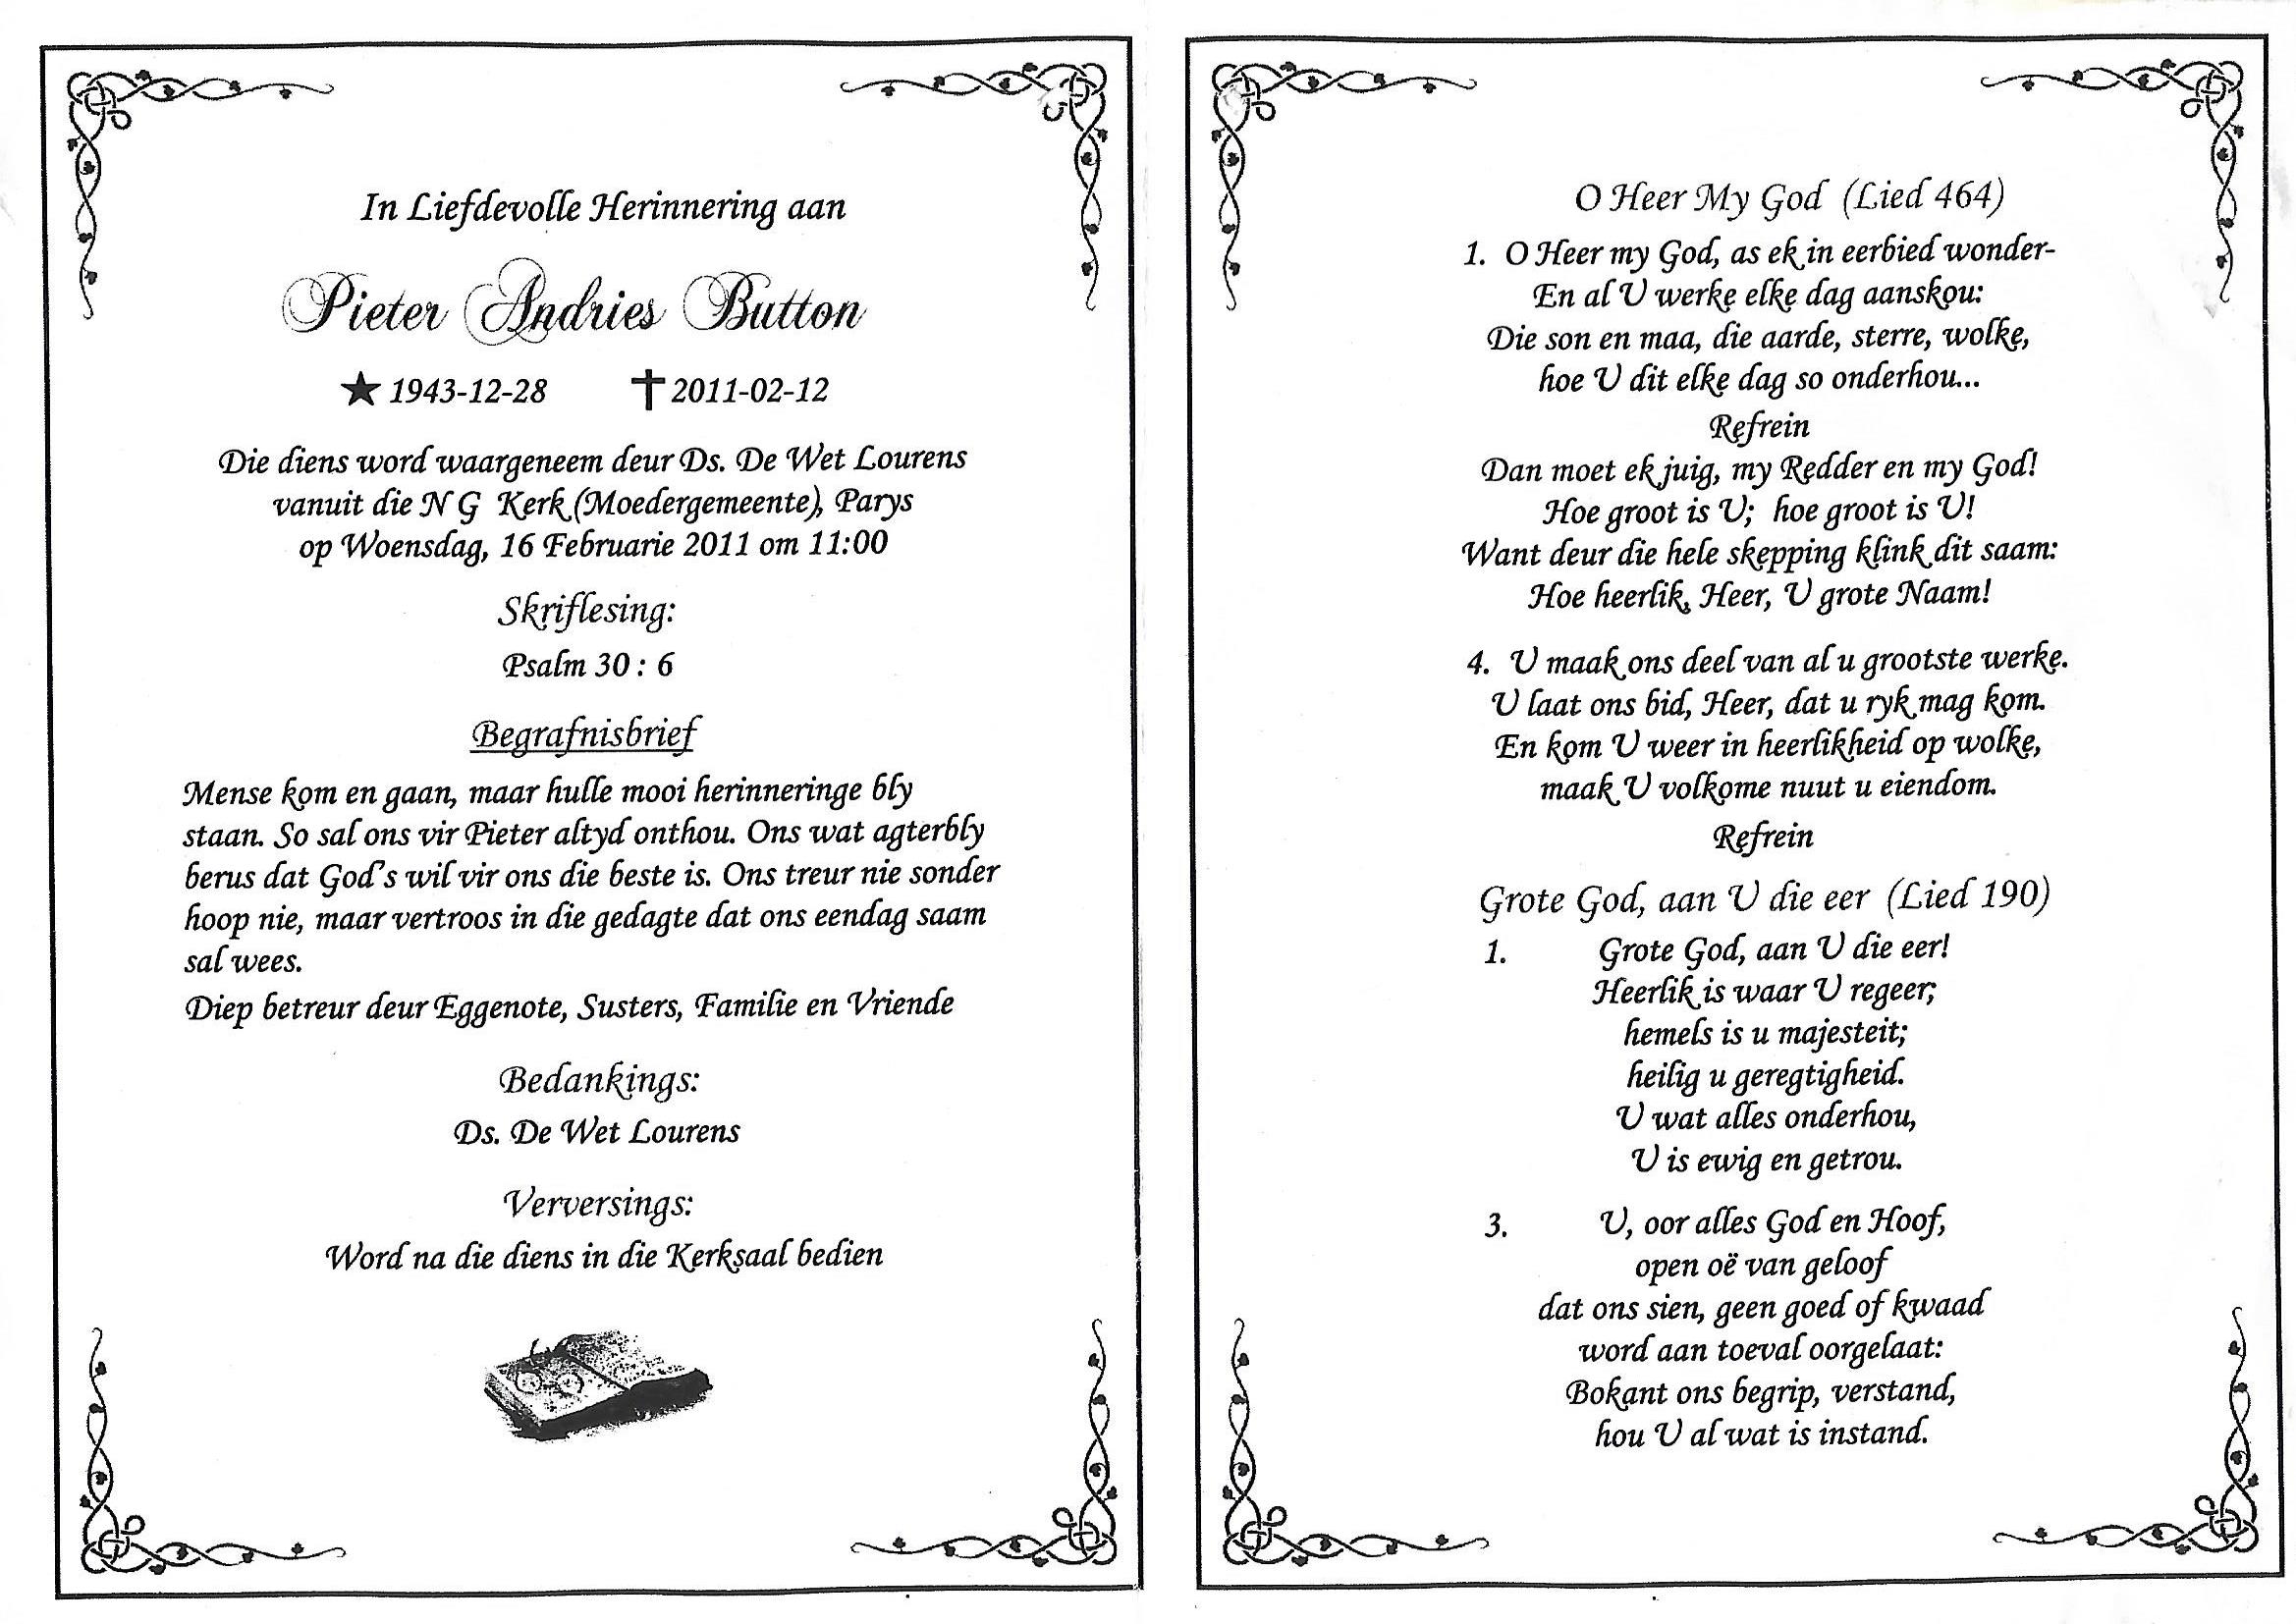 In Liefdevolle Herinnering aan
Pieter Andries Button
★ 1943-12-28 ✝ 2011-02-12
Die diens word waargeneem deur Ds. De Wet Lourens
vanuit die N G Kerk (Moedergemeente), Parys
op Woensdag, 16 Februarie 2011 om 11:00
Skriflesing:
Psalm 30 : 6
Begrafnisbrief
Mense kom en gaan, maar hulle mooi herinneringe bly
staan. So sal ons vir Pieter altyd onthou. Ons wat agterbly
berus dat God's wil vir ons die beste is. Ons treur nie sonder
hoop nie, maar vertroos in die gedagte dat ons eendag saam
sal wees.
Diep betreur deur Eggenote, Susters, Familie en Vriende
Bedankings:
Ds. De Wet Lourens
Verversings:
Word na die diens in die Kerksaal bedien
O Heer My God (Lied 464)
1. O Heer my God, as ek in eerbied wonder-
En al U werke elke dag aanskou:
Die son en maa, die aarde, sterre, wolke,
hoe U dit elke dag so onderhou...
Refrein
Dan moet ek juig, my Redder en my God!
Hoe groot is U; hoe groot is U!
Want deur die hele skepping klink dit saam:
Hoe heerlik, Heer, U grote Naam!
4. U maak ons deel van al u grootste werke.
U laat ons bid, Heer, dat u ryk mag kom.
En kom U weer in heerlikheid op wolke,
maak U volkome nuut u eiendom.
Refrein
Grote God, aan U die eer (Lied 190)
1. Grote God, aan U die eer!
Heerlik is waar U regeer;
hemels is u majesteit;
heilig u geregtigheid.
U wat alles onderhou,
U is ewig en getrou.
3. U, oor alles God en Hoof,
open oë van geloof
dat ons sien, geen goed of kwaad
word aan toeval oorgelaat:
Bokant ons begrip, verstand,
hou U al wat is instand.